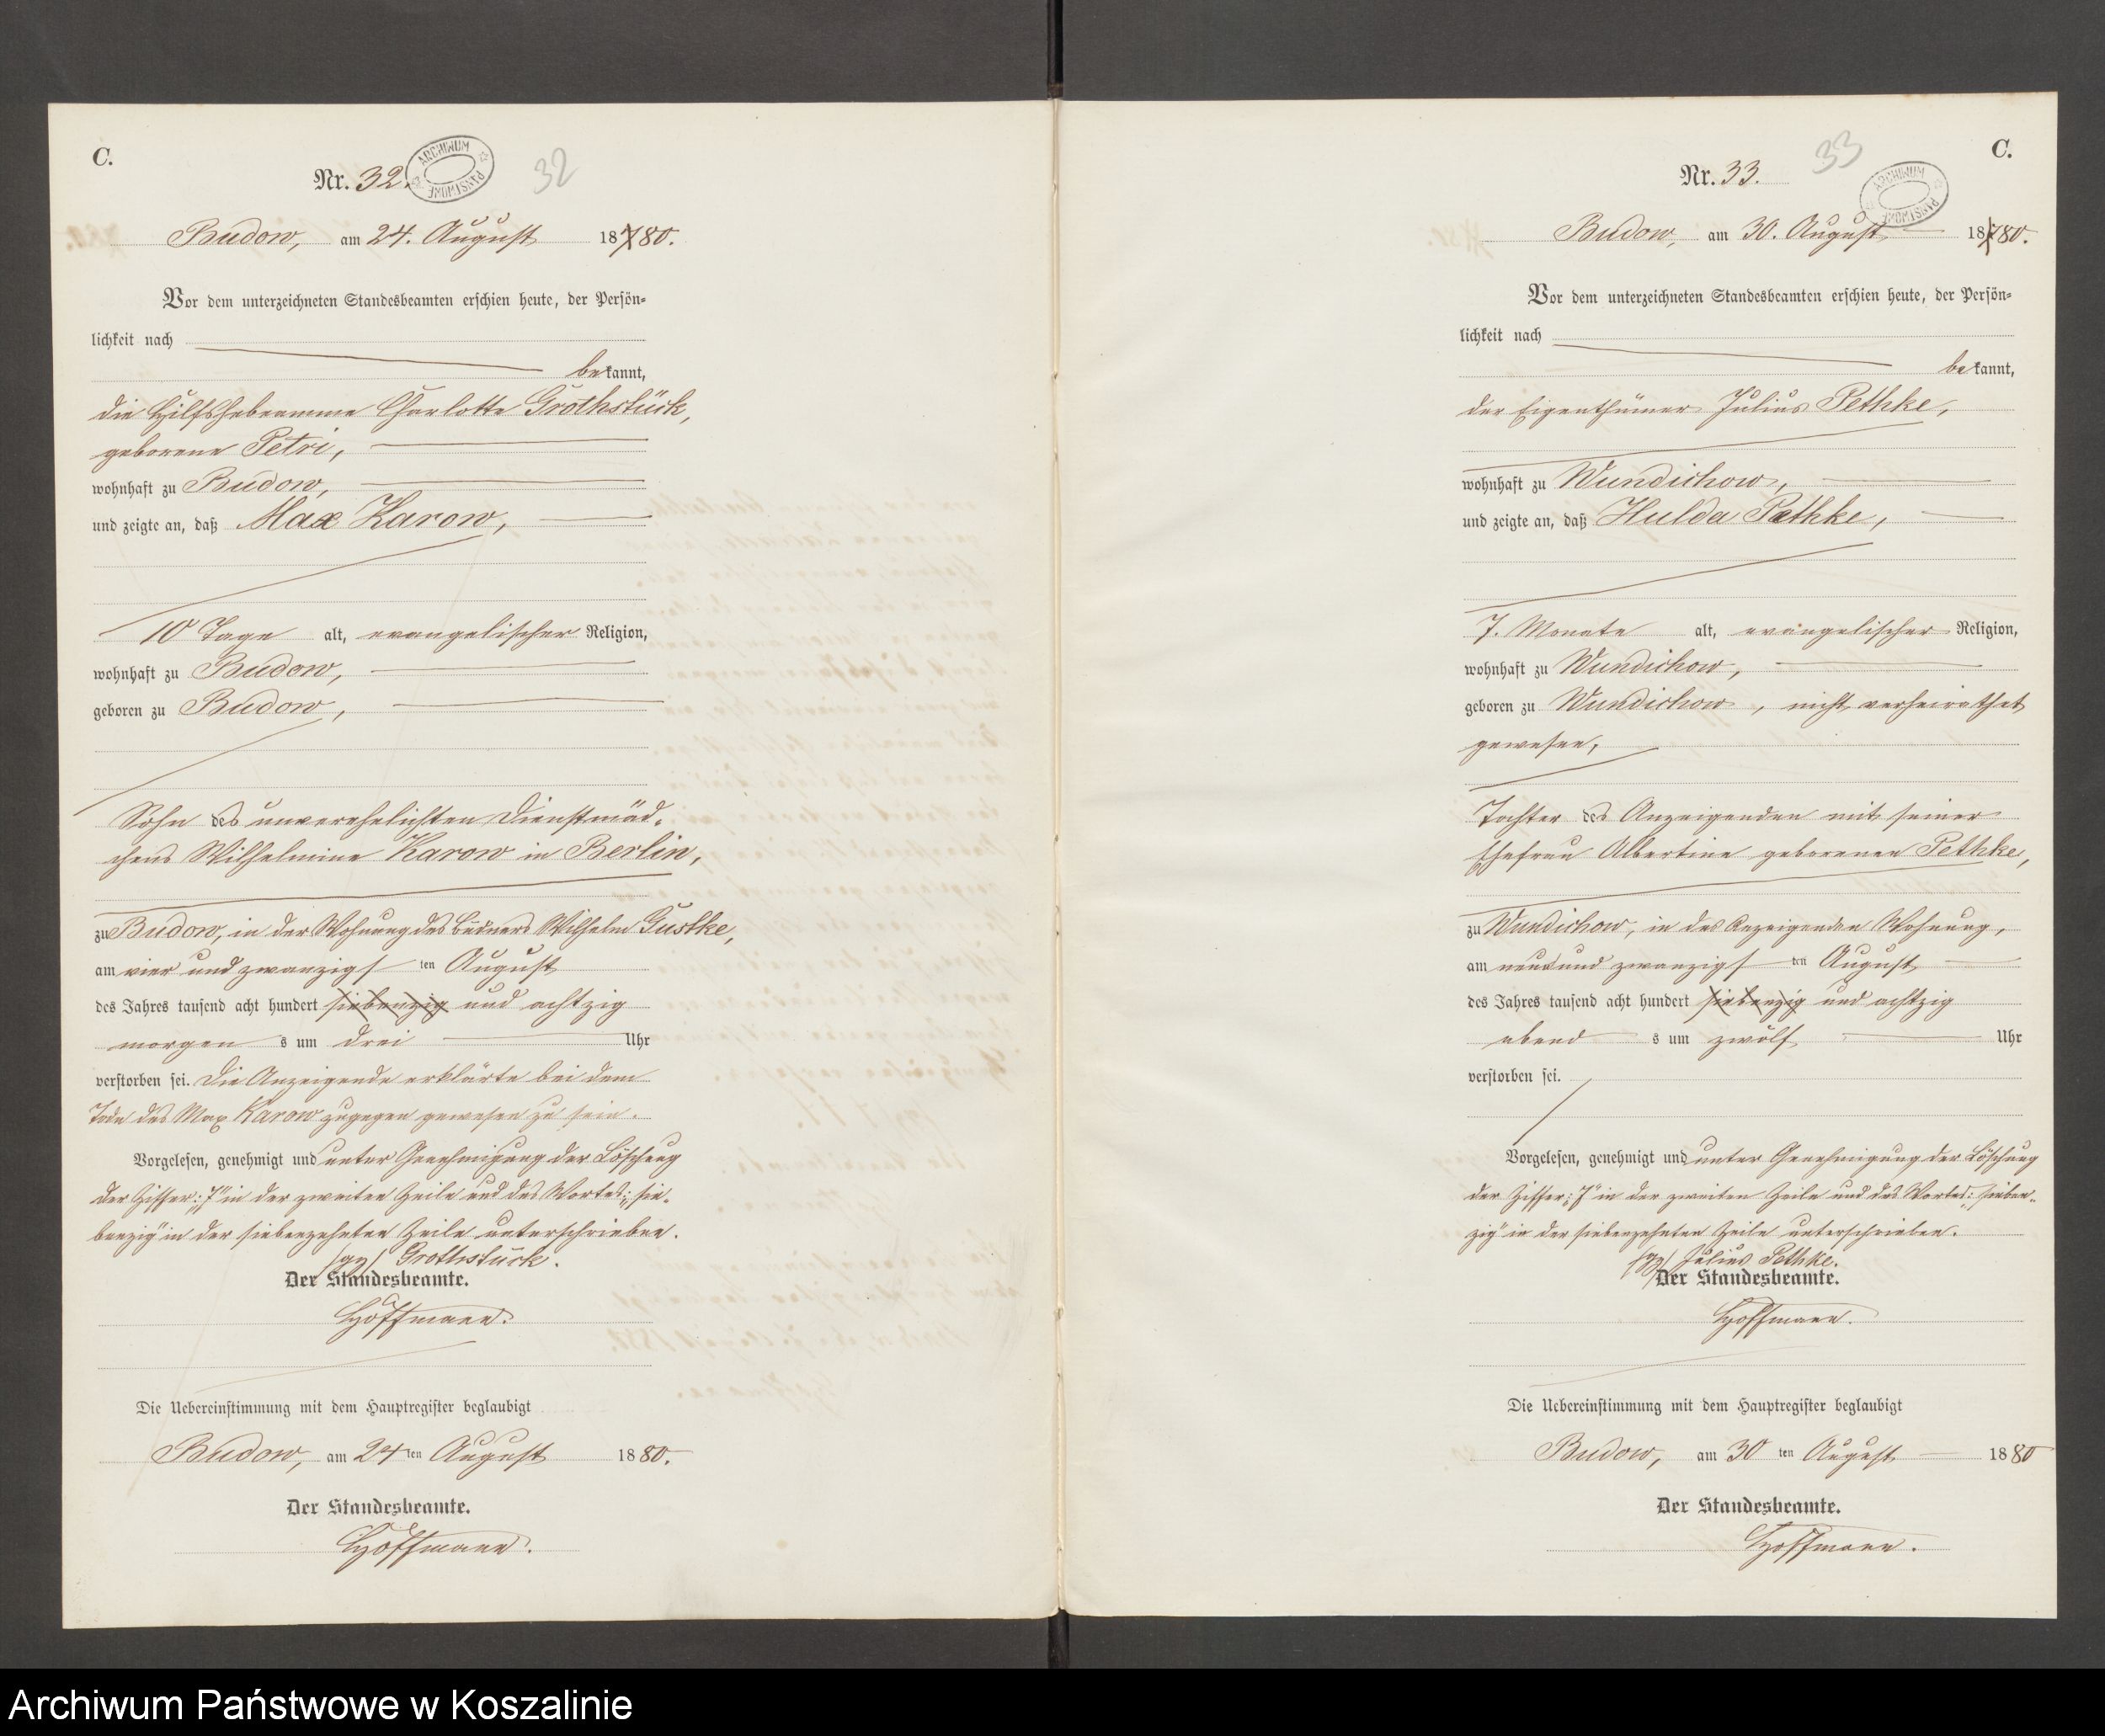 C.
Nr. 32.
ARCHIWUM PAŃSTWOWE
32
Budow, am 24. August 18780.
Vor dem unterzeichneten Standesbeamten erschien heute, der Persön=
lichkeit nach
bekannt,
die Hilfshebeamme Charlotte Grothstück,
geborene Petri,
wohnhaft zu Budow,
und zeigte an, daß Max Karow,
10 Tage alt, evangelischer Religion,
wohnhaft zu Budow,
geboren zu Budow,
Sohn des unverehelichten Dienstmäd-
chens Wilhelmine Karow in Berlin,
zu Budow, in der Wohnung des Büdners Wilhelm Gustke,
am vier und zwanzigsten August
des Jahres tausend acht hundert siebenzig und achtzig
morgens um drei Uhr
verstorben sei. Die Anzeigende erklärte bei dem
Tode des Max Karow zugegen gewesen zu sein.
Vorgelesen, genehmigt und unter Genehmigung der Löschung
der Ziffer: „7" in der zweiten Zeile und des Wortes: „sie-
benzig" in der siebenzehnten Zeile unterschrieben.
(gz) Grothstück.
Der Standesbeamte.
Hoffmann.
Die Uebereinstimmung mit dem Hauptregister beglaubigt
Budow, am 24ten August 1880.
Der Standesbeamte.
Hoffmann.
C.
Nr. 33.
33
ARCHIWUM PAŃSTWOWE
Budow, am 30. August 18780.
Vor dem unterzeichneten Standesbeamten erschien heute, der Persön=
lichkeit nach
bekannt,
der Eigenthümer Julius Pethke,
wohnhaft zu Wundichow,
und zeigte an, daß Hulda Pethke,
7. Monate alt, evangelischer Religion,
wohnhaft zu Wundichow,
geboren zu Wundichow, nicht verheirathet
gewesen,
Tochter des Anzeigenden mit seiner
Ehefrau Albertine geborenen Pethke,
zu Wundichow, in des Anzeigenden Wohnung,
am neun und zwanzigsten August
des Jahres tausend acht hundert siebenzig und achtzig
abends um zwölf Uhr
verstorben sei.
Vorgelesen, genehmigt und unter Genehmigung der Löschung
der Ziffer: „7" in der zweiten Zeile und des Wortes: „sieben-
zig" in der siebenzehnten Zeile unterschrieben.
(gz) Julius Pethke.
Der Standesbeamte.
Hoffmann.
Die Uebereinstimmung mit dem Hauptregister beglaubigt
Budow, am 30ten August 1880
Der Standesbeamte.
Hoffmann.
Archiwum Państwowe w Koszalinie